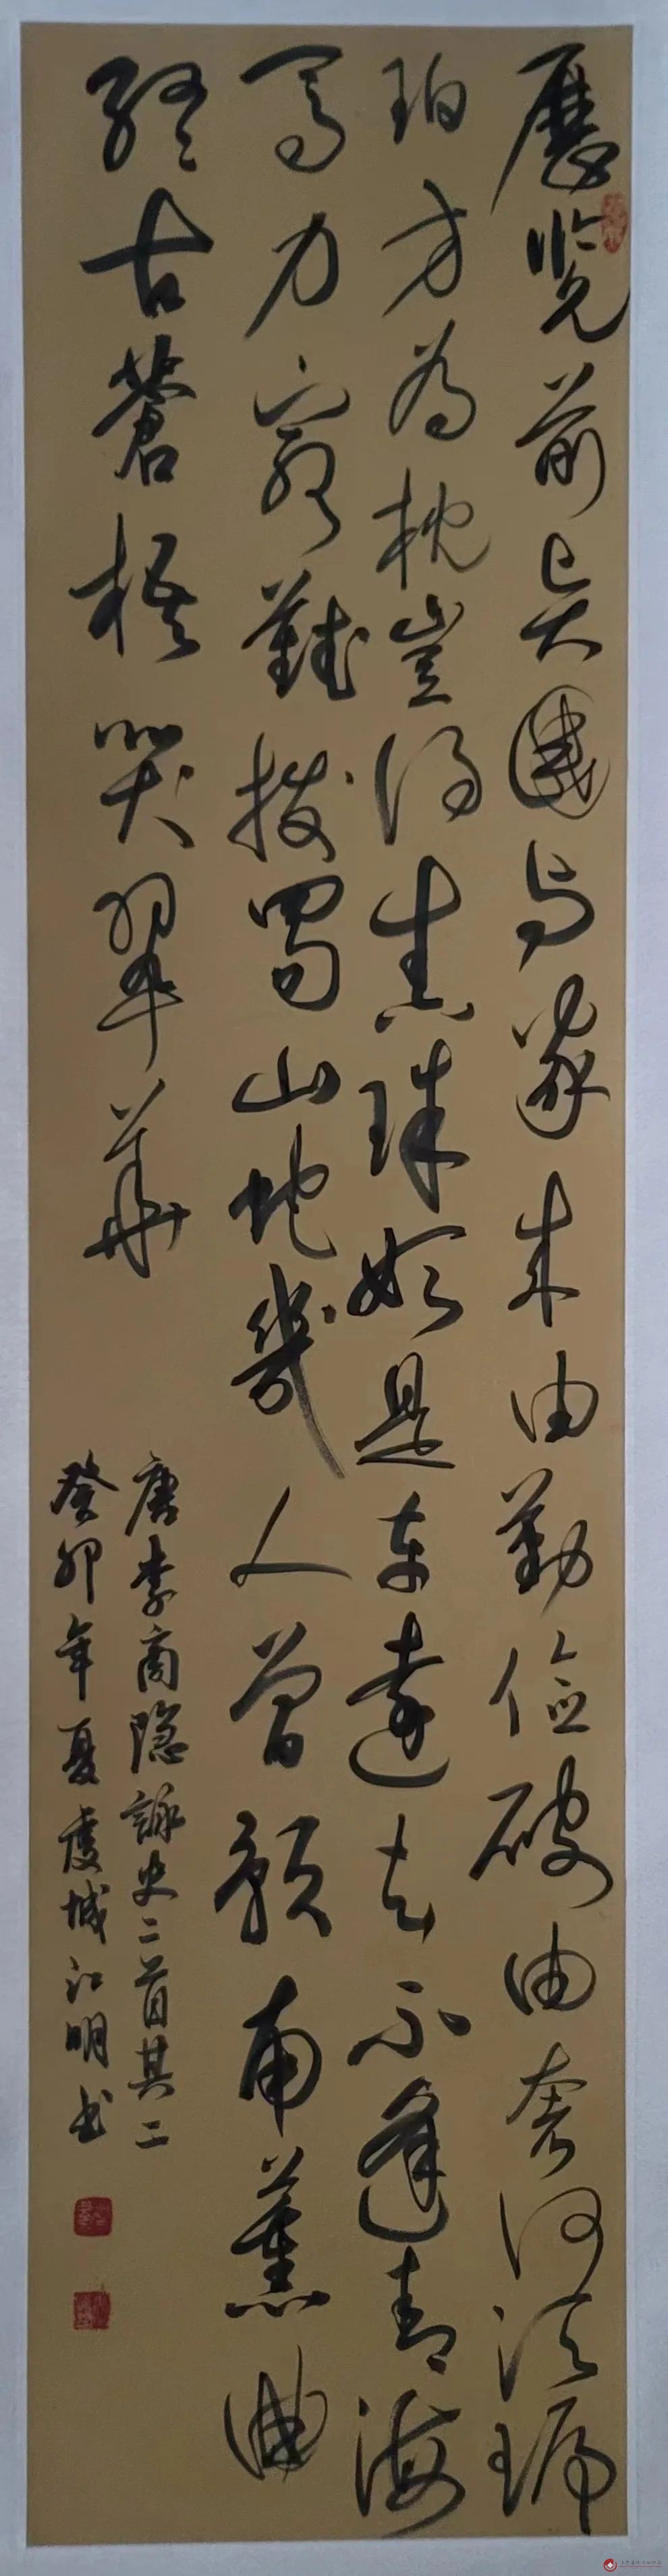 歷览前賢國与家成由勤儉破由奢何須琥
珀方為枕豈得真珠始是車運去不逢青海
馬力窮難拔蜀山蛇幾人曾預南薰曲
終古蒼梧哭翠華
唐李商隐詠史二首其二
癸卯年夏虞城江明书